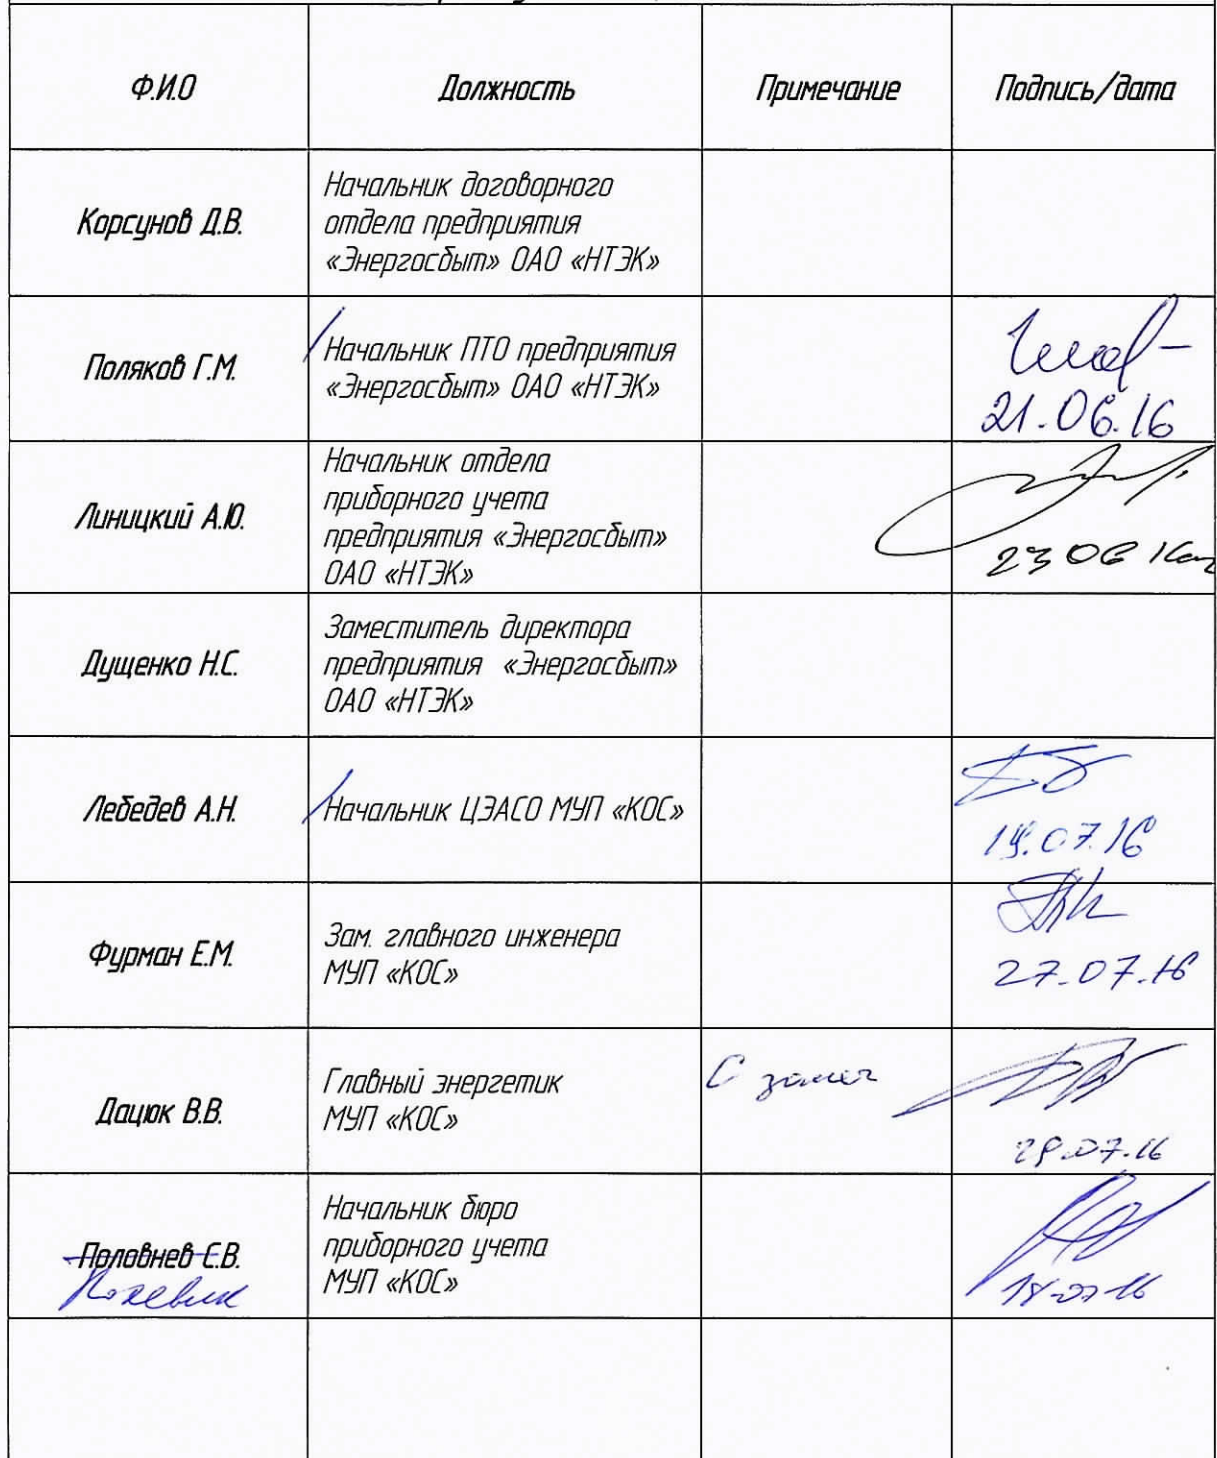 Ф.И.О
Должность
Примечание
Подпись/дата
Корсунов Д.В.
Начальник договорного
отдела предприятия
«Энергосбыт» ОАО «НТЭК»
Поляков Г.М.
Начальник ПТО предприятия
«Энергосбыт» ОАО «НТЭК»
21.06.16
Линицкий А.Ю.
Начальник отдела
приборного учета
предприятия «Энергосбыт»
ОАО «НТЭК»
23 06 16
Дущенко Н.С.
Заместитель директора
предприятия «Энергосбыт»
ОАО «НТЭК»
Лебедев А.Н.
Начальник ЦЭАСО МУП «КОС»
07.16
Фурман Е.М.
Зам. главного инженера
МУП «КОС»
27.07.16
Дацюк В.В.
Главный энергетик
МУП «КОС»
С замеч
07.16
Половнев С.В.
Начальник бюро
приборного учета
МУП «КОС»
18-07-16